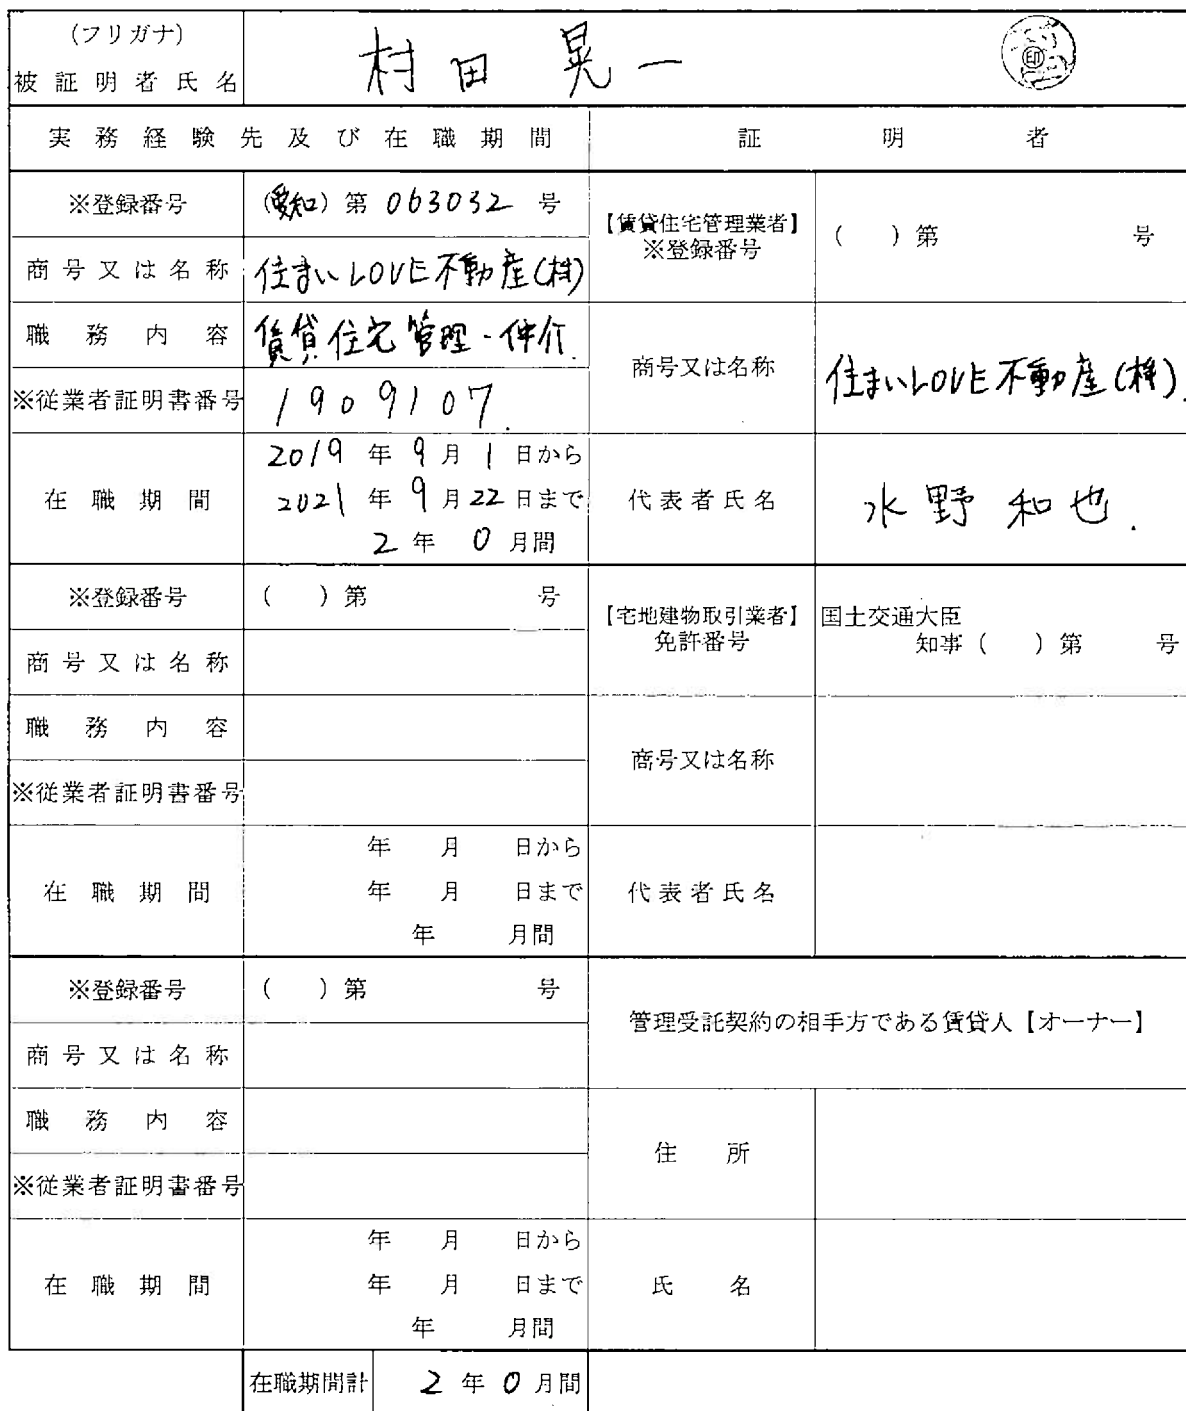 (フリガナ)
被証明者氏名 村田 晃一 印
実務経験先及び在職期間 証明者
※登録番号 (愛知)第 063032 号
【賃貸住宅管理業者】
※登録番号 ( )第 号
商号又は名称 住まいLOVE不動産(株)
職務内容 賃貸住宅管理・仲介
商号又は名称 住まいLOVE不動産(株)
※従業者証明書番号 1909107
在職期間 2019 年 9 月 1 日から
2021 年 9 月 22 日まで
2 年 0 月間
代表者氏名 水野 和也
※登録番号 ( )第 号
【宅地建物取引業者】
免許番号
国土交通大臣
知事( )第 号
商号又は名称
職務内容
商号又は名称
※従業者証明書番号
在職期間 年 月 日から
年 月 日まで
年 月間
代表者氏名
※登録番号 ( )第 号
管理受託契約の相手方である賃貸人【オーナー】
商号又は名称
職務内容
住所
※従業者証明書番号
在職期間 年 月 日から
年 月 日まで
年 月間
氏名
在職期間計 2 年 0 月間